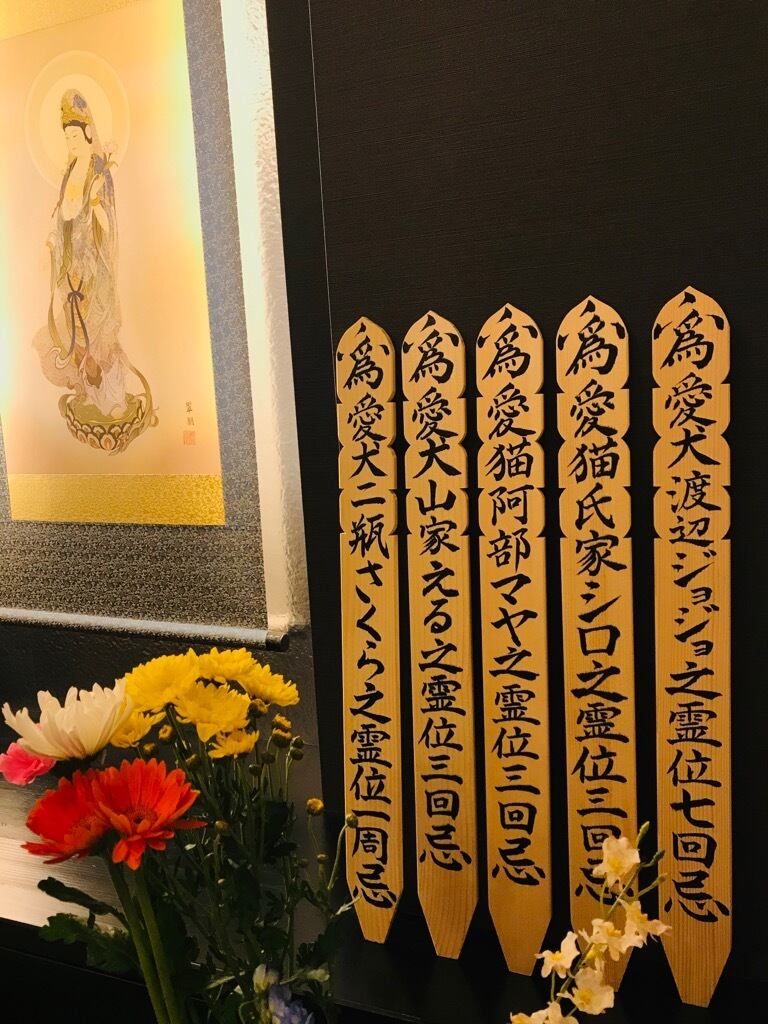 為愛犬渡辺ジョジョ之霊位七回忌
為愛猫氏家シロ之霊位三回忌
為愛猫阿部マヤ之霊位三回忌
為愛犬山家える之霊位三回忌
為愛犬二瓶さくら之霊位一周忌